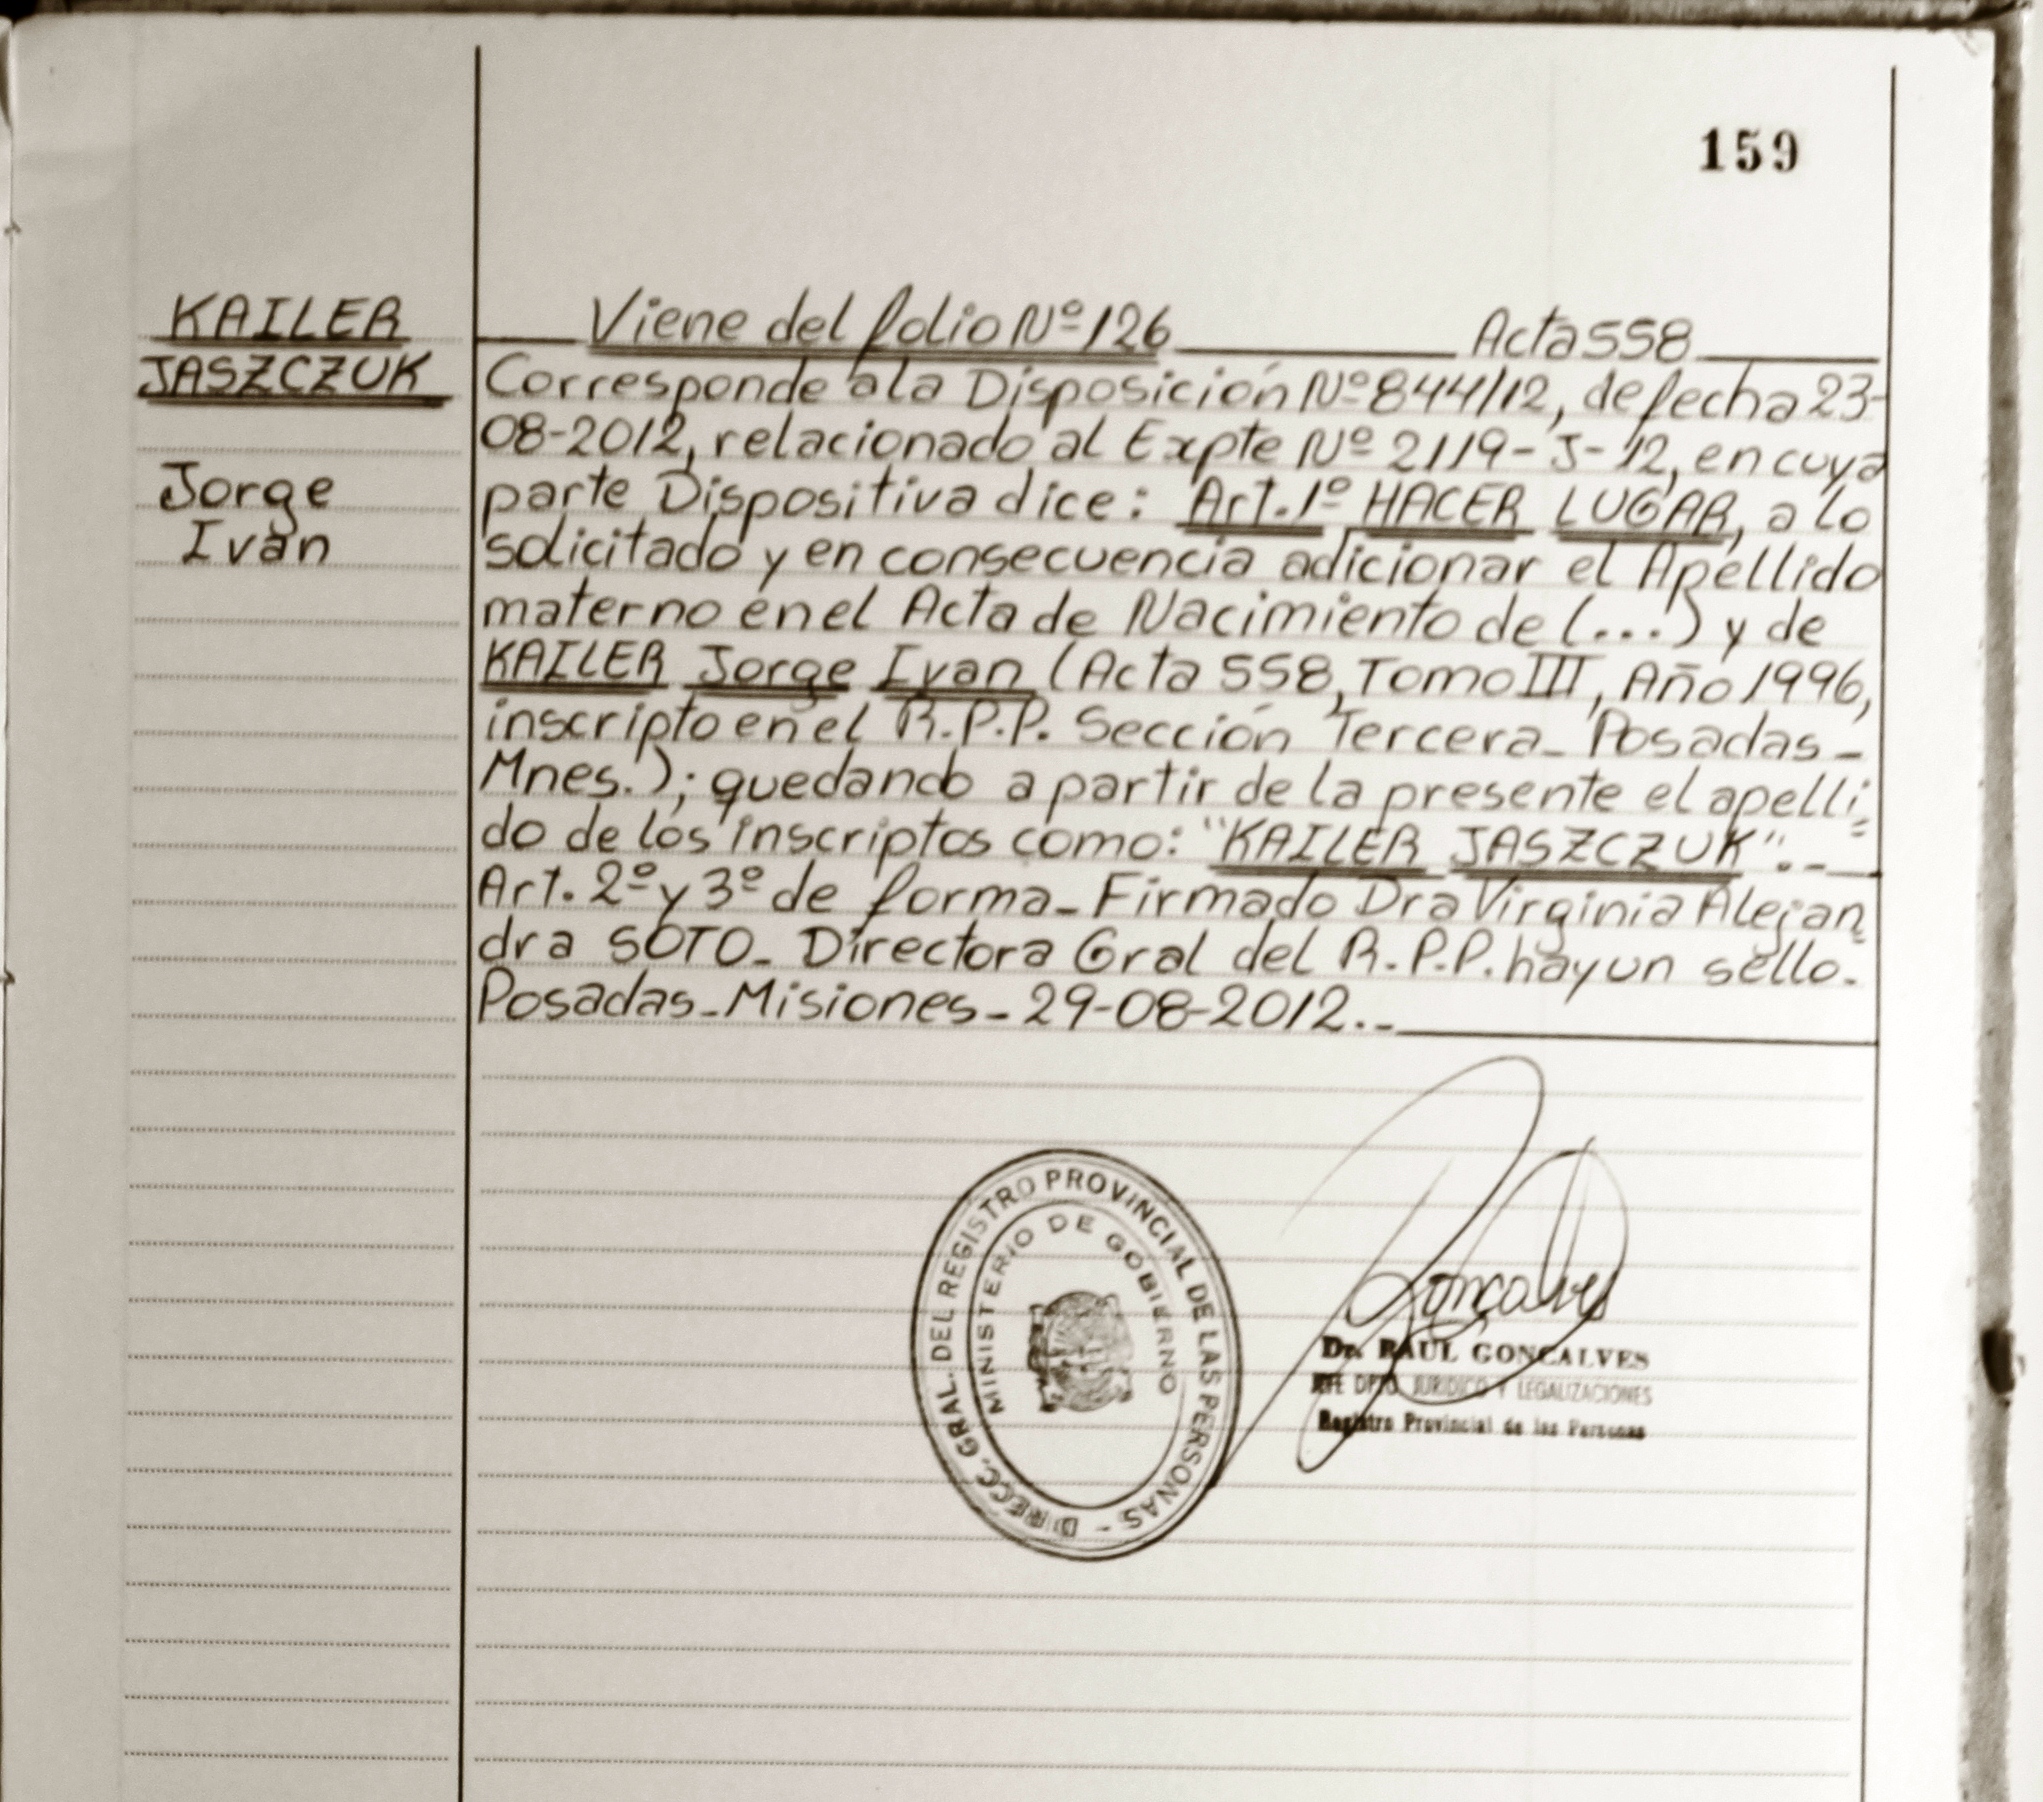 159
KAILER
JASZCZUK
Jorge
Ivan
Viene del folio Nº 126 Acta 558
Corresponde a la Disposición Nº 844/12, de fecha 23-
08-2012, relacionado al Expte Nº 2119-J-12, en cuya
parte Dispositiva dice: Art. 1º HACER LUGAR, a lo
solicitado y en consecuencia adicionar el Apellido
materno en el Acta de Nacimiento de (...) y de
KAILER Jorge Ivan (Acta 558, Tomo III, Año 1996,
inscripto en el R.P.P. Sección Tercera_ Posadas_
Mnes.); quedando a partir de la presente el apelli=
do de los inscriptos como: "KAILER JASZCZUK"._
Art. 2º y 3º de forma_ Firmado Dra Virginia Alejan=
dra SOTO_ Directora Gral del R.P.P. hay un sello.
Posadas_Misiones_29-08-2012._
DIRECC. GRAL. DEL REGISTRO PROVINCIAL DE LAS PERSONAS -
MINISTERIO DE GOBIERNO
Goncalves
Dr. RAUL GONCALVES
JEFE DPTO. JURIDICO Y LEGALIZACIONES
Registro Provincial de las Personas